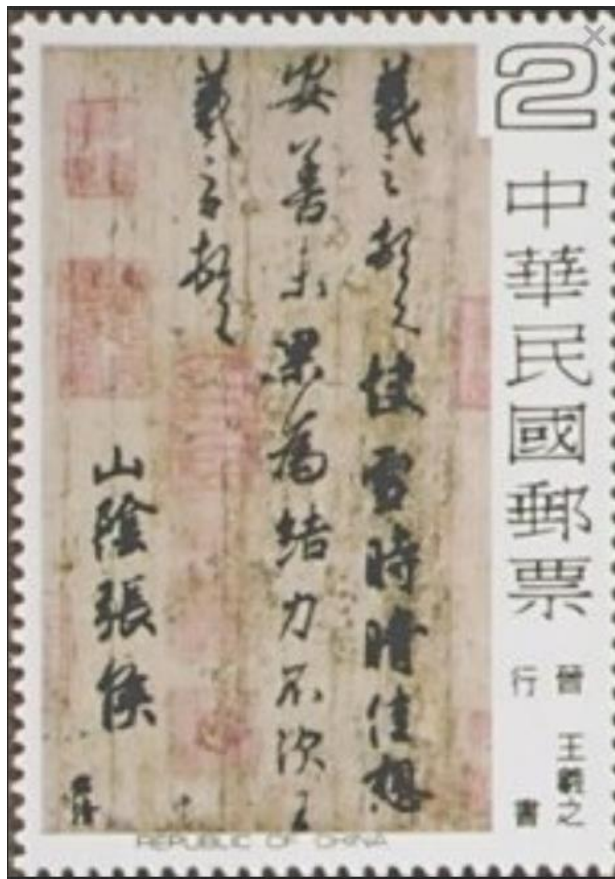 2
中華民國郵票
晉 王羲之
行書
羲之頓首快雪時晴佳想
安善未果為結力不次王
羲之頓首
山陰張侯
REPUBLIC OF CHINA